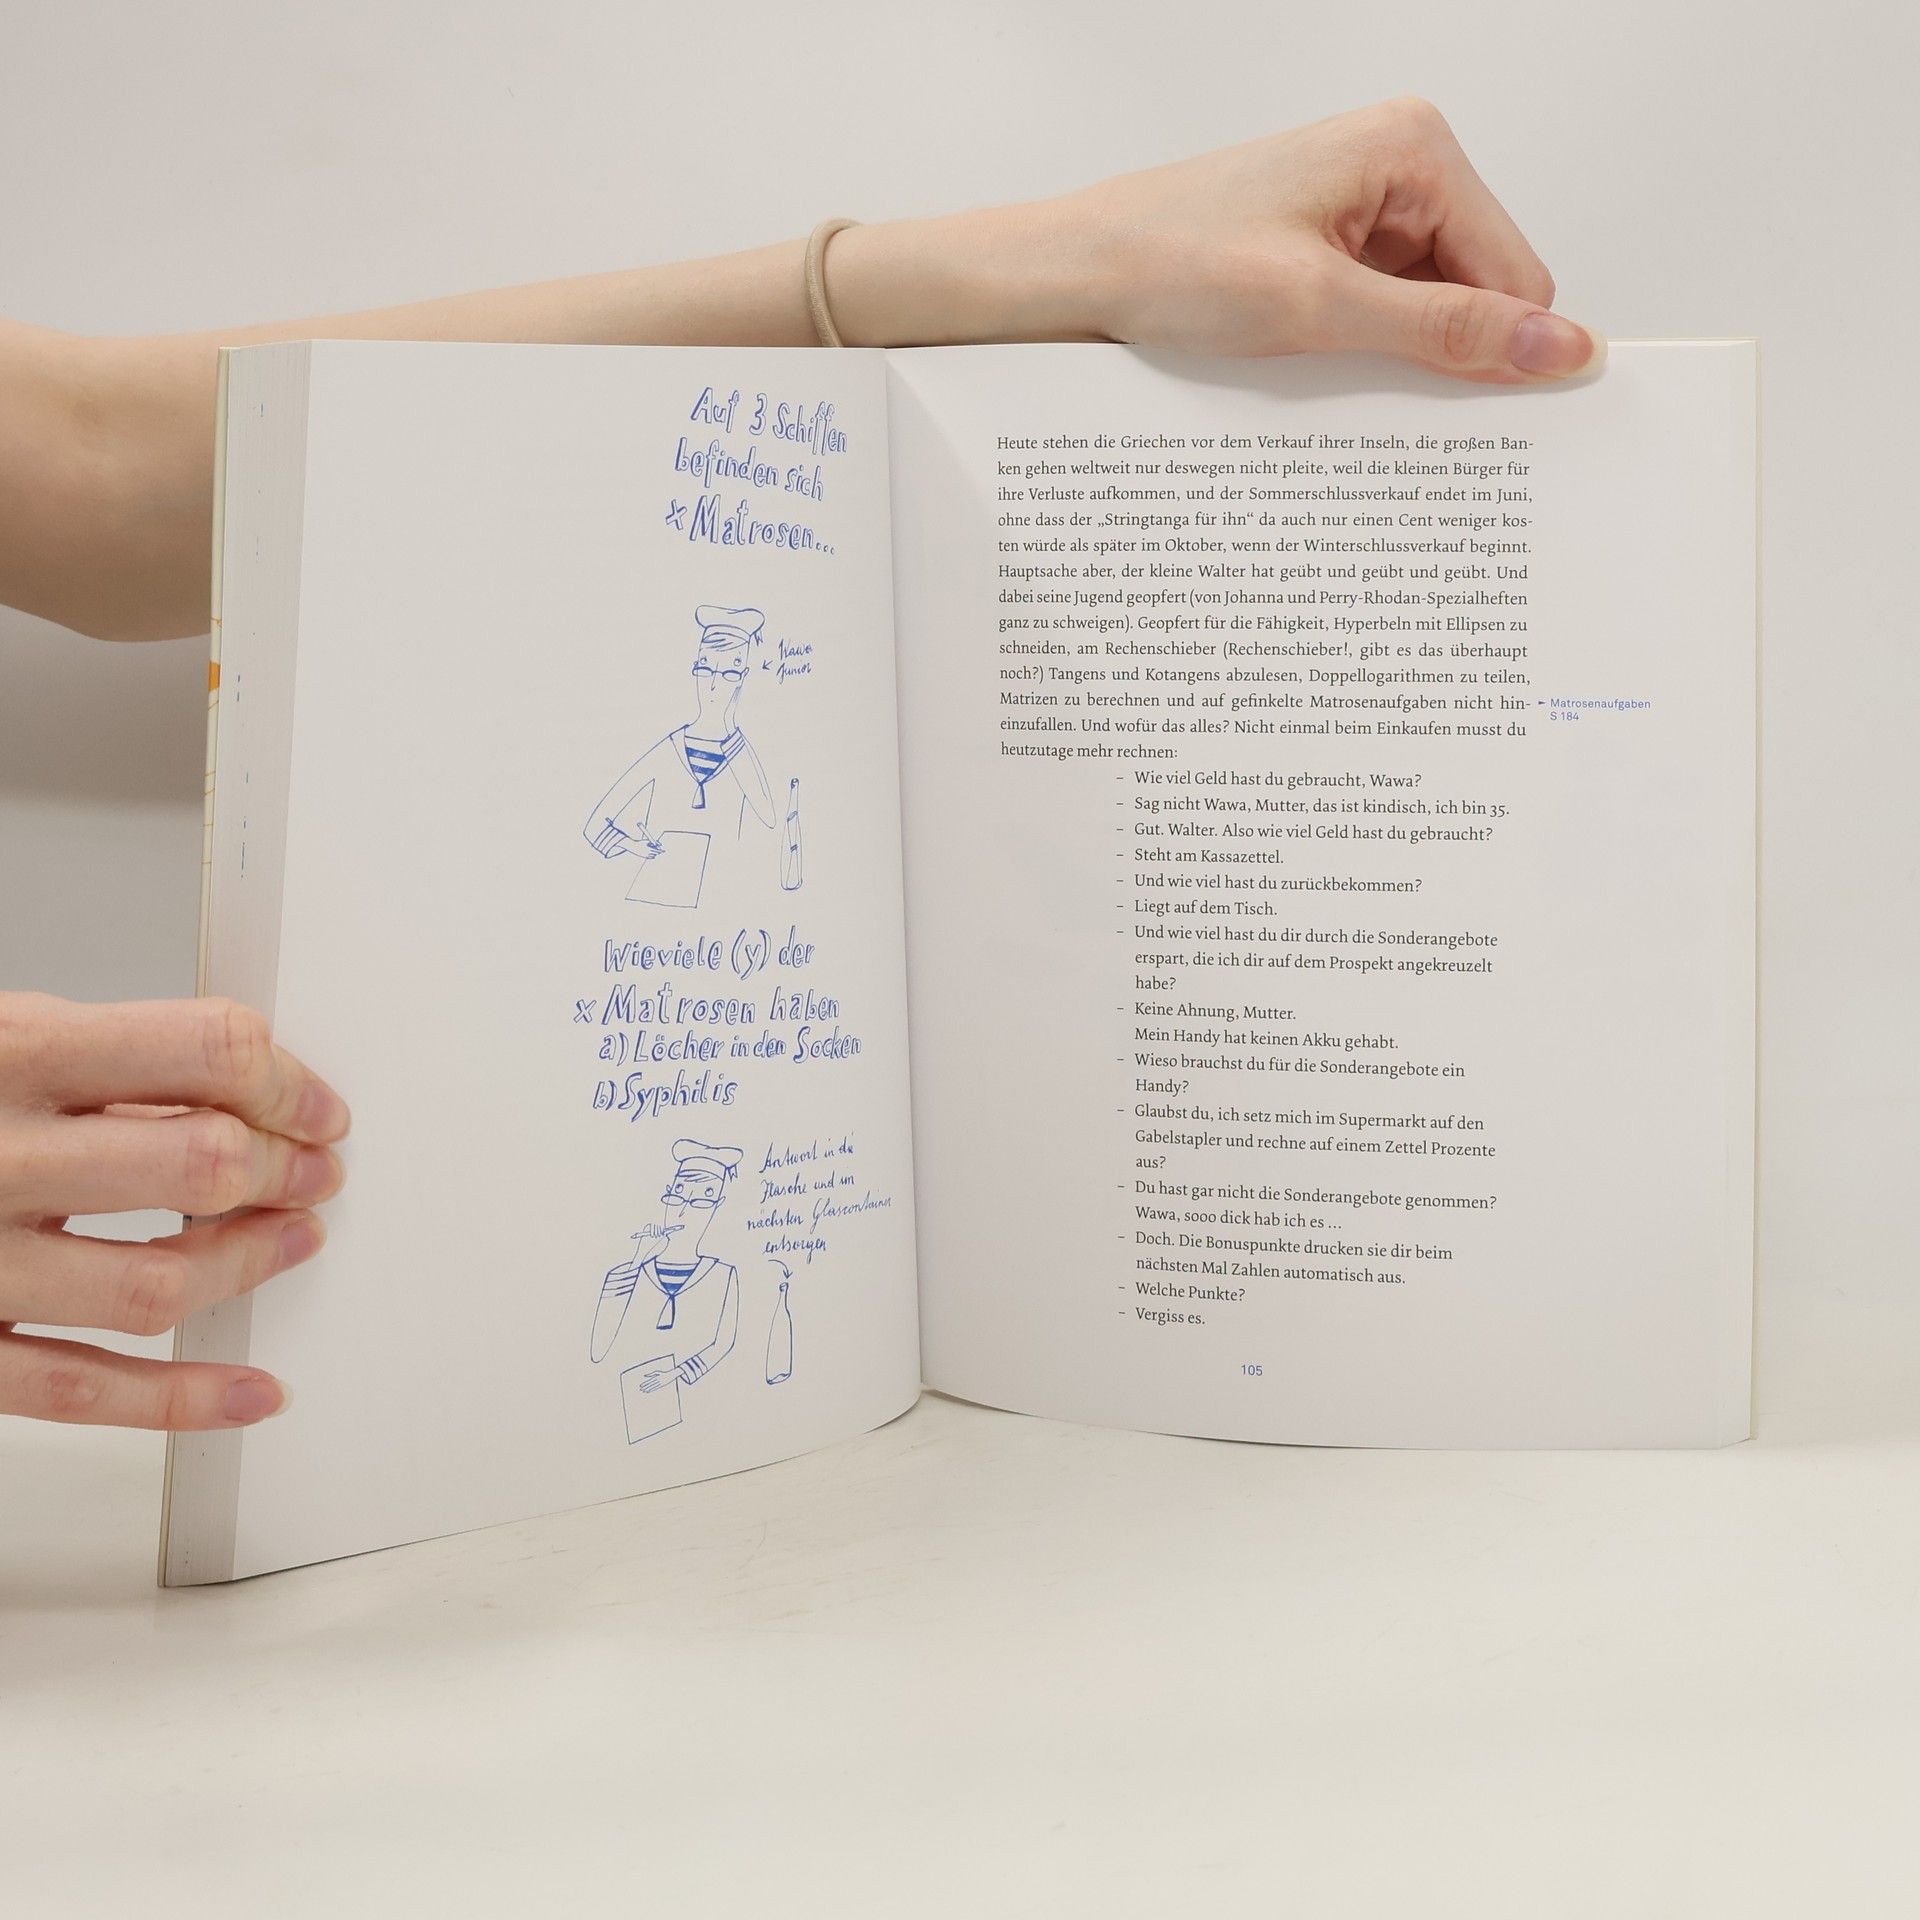 Auf 3 Schiffen
befinden sich
x Matrosen...
Wawa
Junior
Wieviele (y) der
x Matrosen haben
a) Löcher in den Socken
b) Syphilis
Antwort in die
Flasche und im
nächsten Glascontainer
entsorgen
Heute stehen die Griechen vor dem Verkauf ihrer Inseln, die großen Ban-
ken gehen weltweit nur deswegen nicht pleite, weil die kleinen Bürger für
ihre Verluste aufkommen, und der Sommerschlussverkauf endet im Juni,
ohne dass der „Stringtanga für ihn“ da auch nur einen Cent weniger kos-
ten würde als später im Oktober, wenn der Winterschlussverkauf beginnt.
Hauptsache aber, der kleine Walter hat geübt und geübt und geübt. Und
dabei seine Jugend geopfert (von Johanna und Perry-Rhodan-Spezialheften
ganz zu schweigen). Geopfert für die Fähigkeit, Hyperbeln mit Ellipsen zu
schneiden, am Rechenschieber (Rechenschieber!, gibt es das überhaupt
noch?) Tangens und Kotangens abzulesen, Doppellogarithmen zu teilen,
Matrizen zu berechnen und auf gefinkelte Matrosenaufgaben nicht hin-
einzufallen. Und wofür das alles? Nicht einmal beim Einkaufen musst du
heutzutage mehr rechnen:
► Matrosenaufgaben
S 184
– Wie viel Geld hast du gebraucht, Wawa?
– Sag nicht Wawa, Mutter, das ist kindisch, ich bin 35.
– Gut. Walter. Also wie viel Geld hast du gebraucht?
– Steht am Kassazettel.
– Und wie viel hast du zurückbekommen?
– Liegt auf dem Tisch.
– Und wie viel hast du dir durch die Sonderangebote
erspart, die ich dir auf dem Prospekt angekreuzelt
habe?
– Keine Ahnung, Mutter.
Mein Handy hat keinen Akku gehabt.
– Wieso brauchst du für die Sonderangebote ein
Handy?
– Glaubst du, ich setz mich im Supermarkt auf den
Gabelstapler und rechne auf einem Zettel Prozente
aus?
– Du hast gar nicht die Sonderangebote genommen?
Wawa, sooo dick hab ich es ...
– Doch. Die Bonuspunkte drucken sie dir beim
nächsten Mal Zahlen automatisch aus.
– Welche Punkte?
– Vergiss es.
105